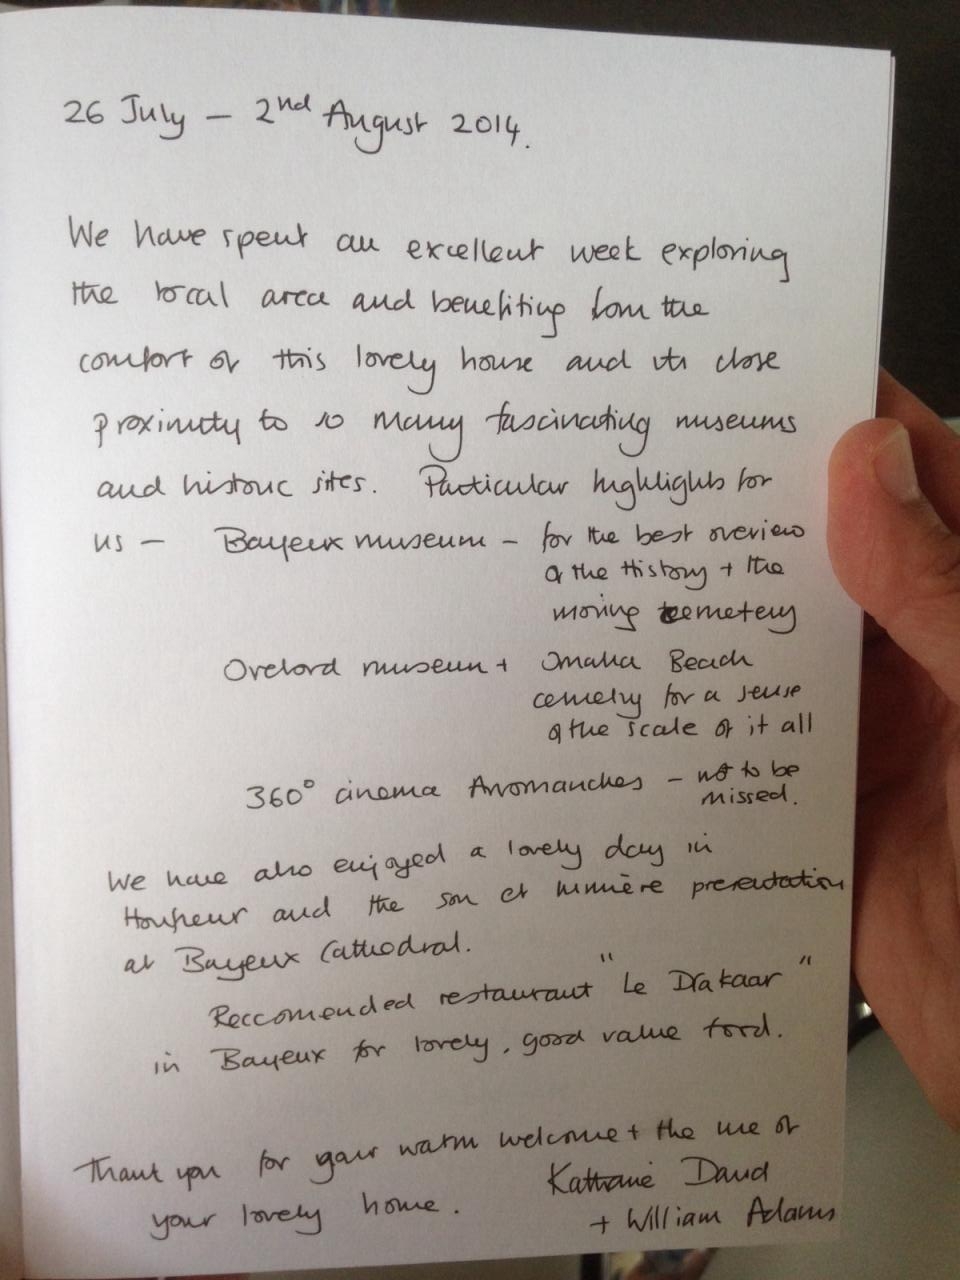 26 July – 2nd August 2014.
We have spent an excellent week exploring
the local area and benefiting from the
comfort of this lovely house and its close
proximity to so many fascinating museums
and historic sites. Particular highlights for
us – Bayeux museum – for the best overview
of the History + the
moving cemetery
Overlord museum + Omaha Beach
cemetry for a sense
of the scale of it all
360° cinema Arromanches – not to be
missed.
We have also enjoyed a lovely day in
Honfleur and the son et lumière presentation
at Bayeux Cathedral.
Reccomended restaurant "Le Drakaar"
in Bayeux for lovely, good value food.
Thank you for your warm welcome + the use of
your lovely home.
Katharine David
+ William Adams